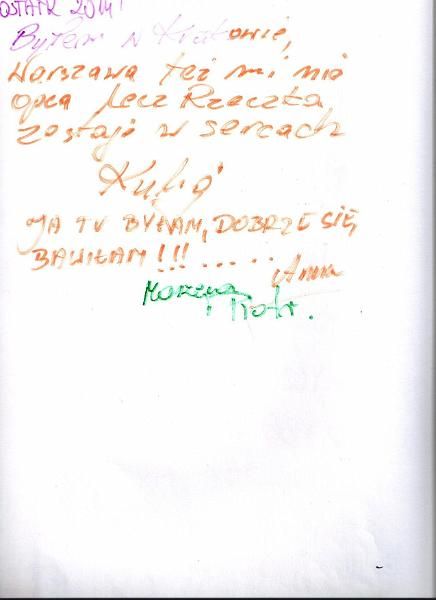 OSTATKI 2014!
Byłem w Krakowie,
Warszawa też mi nie
opca lecz Rzeczka
zostaje w sercach
Kuba
JA TU BYŁAM, DOBRZE SIĘ
BAWIŁAM!!!.....
Anna
Marzena
i Piotr.